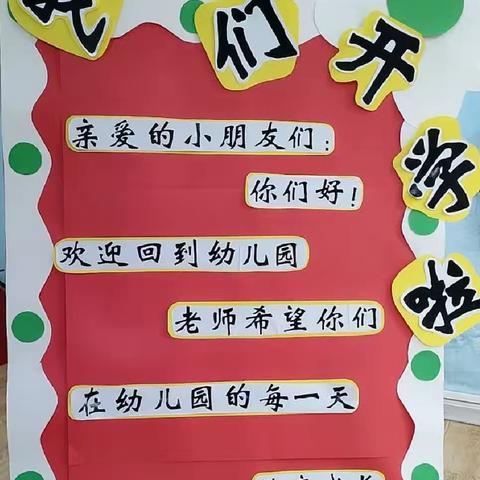 我们开学啦
亲爱的小朋友们：
你们好！
欢迎回到幼儿园
老师希望你们
在幼儿园的每一天